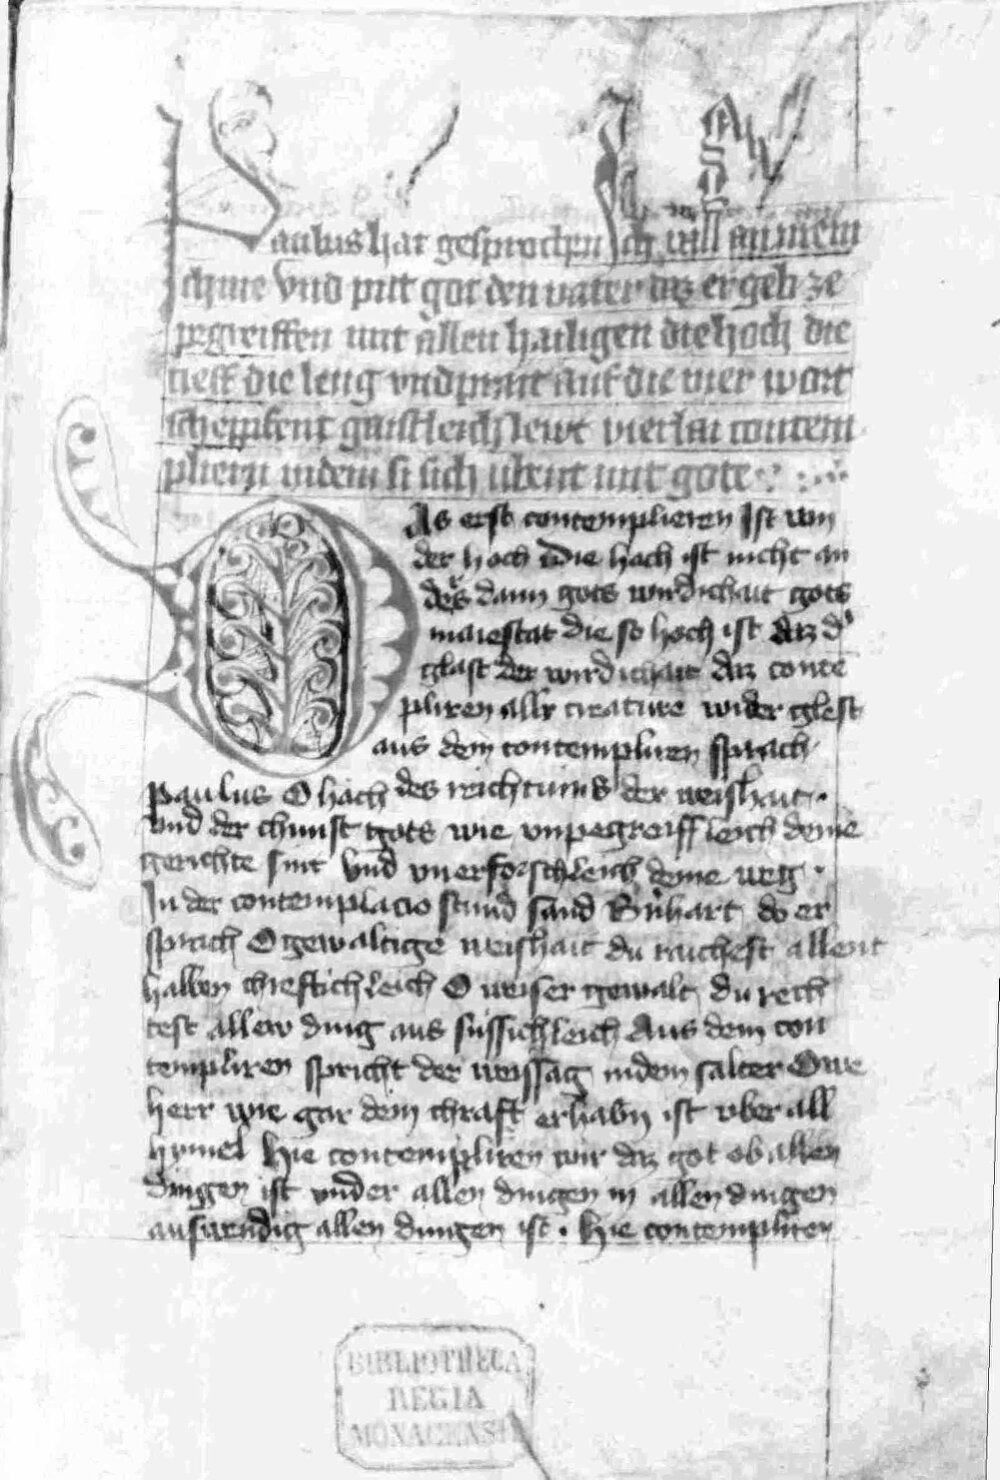 Paulus hat gesprochen Ich will an mein
chnie vnd pitt got den vater daz er geb ze
pegreiffen mit allen hailigen die hoch die
tieff die leng vnd prait auf die vier wort
gaistleich lewt vierlai contem
plieren in dem si sich vbent mit gote
Das erst contemplieren Ist von
der hoch Die hoch ist nicht an
ders dann gots wirdichait gots
maiestat die so hoch ist daz d'
glast der wirdichait daz conte
pliren allr creature wider glest
aus dem contempliren sprach
paulus O hoch des reichtums der weishait.
vnd der chunst gots wie vnpegreiffleich deine
gerichte sint vnd vnerforschleich deine weg.
In der contemplacio stund sand Bnhart do er
sprach O gewaltige weishait du raichest allent
halben chreftichleich O weiser gewalt du rech
test allew ding aus sussichleich Aus dem con
templiren spricht der weissag in dem salter Owe
herr wie gar dein chraft erhabn ist vber all
hymel Hie contempliren wir daz got ob allen
dingen ist vnder allen dingen in allen dingen
auswendig allen dingen ist. Hie contempliren
BIBLIOTHECA
REGIA
MONACENSIS